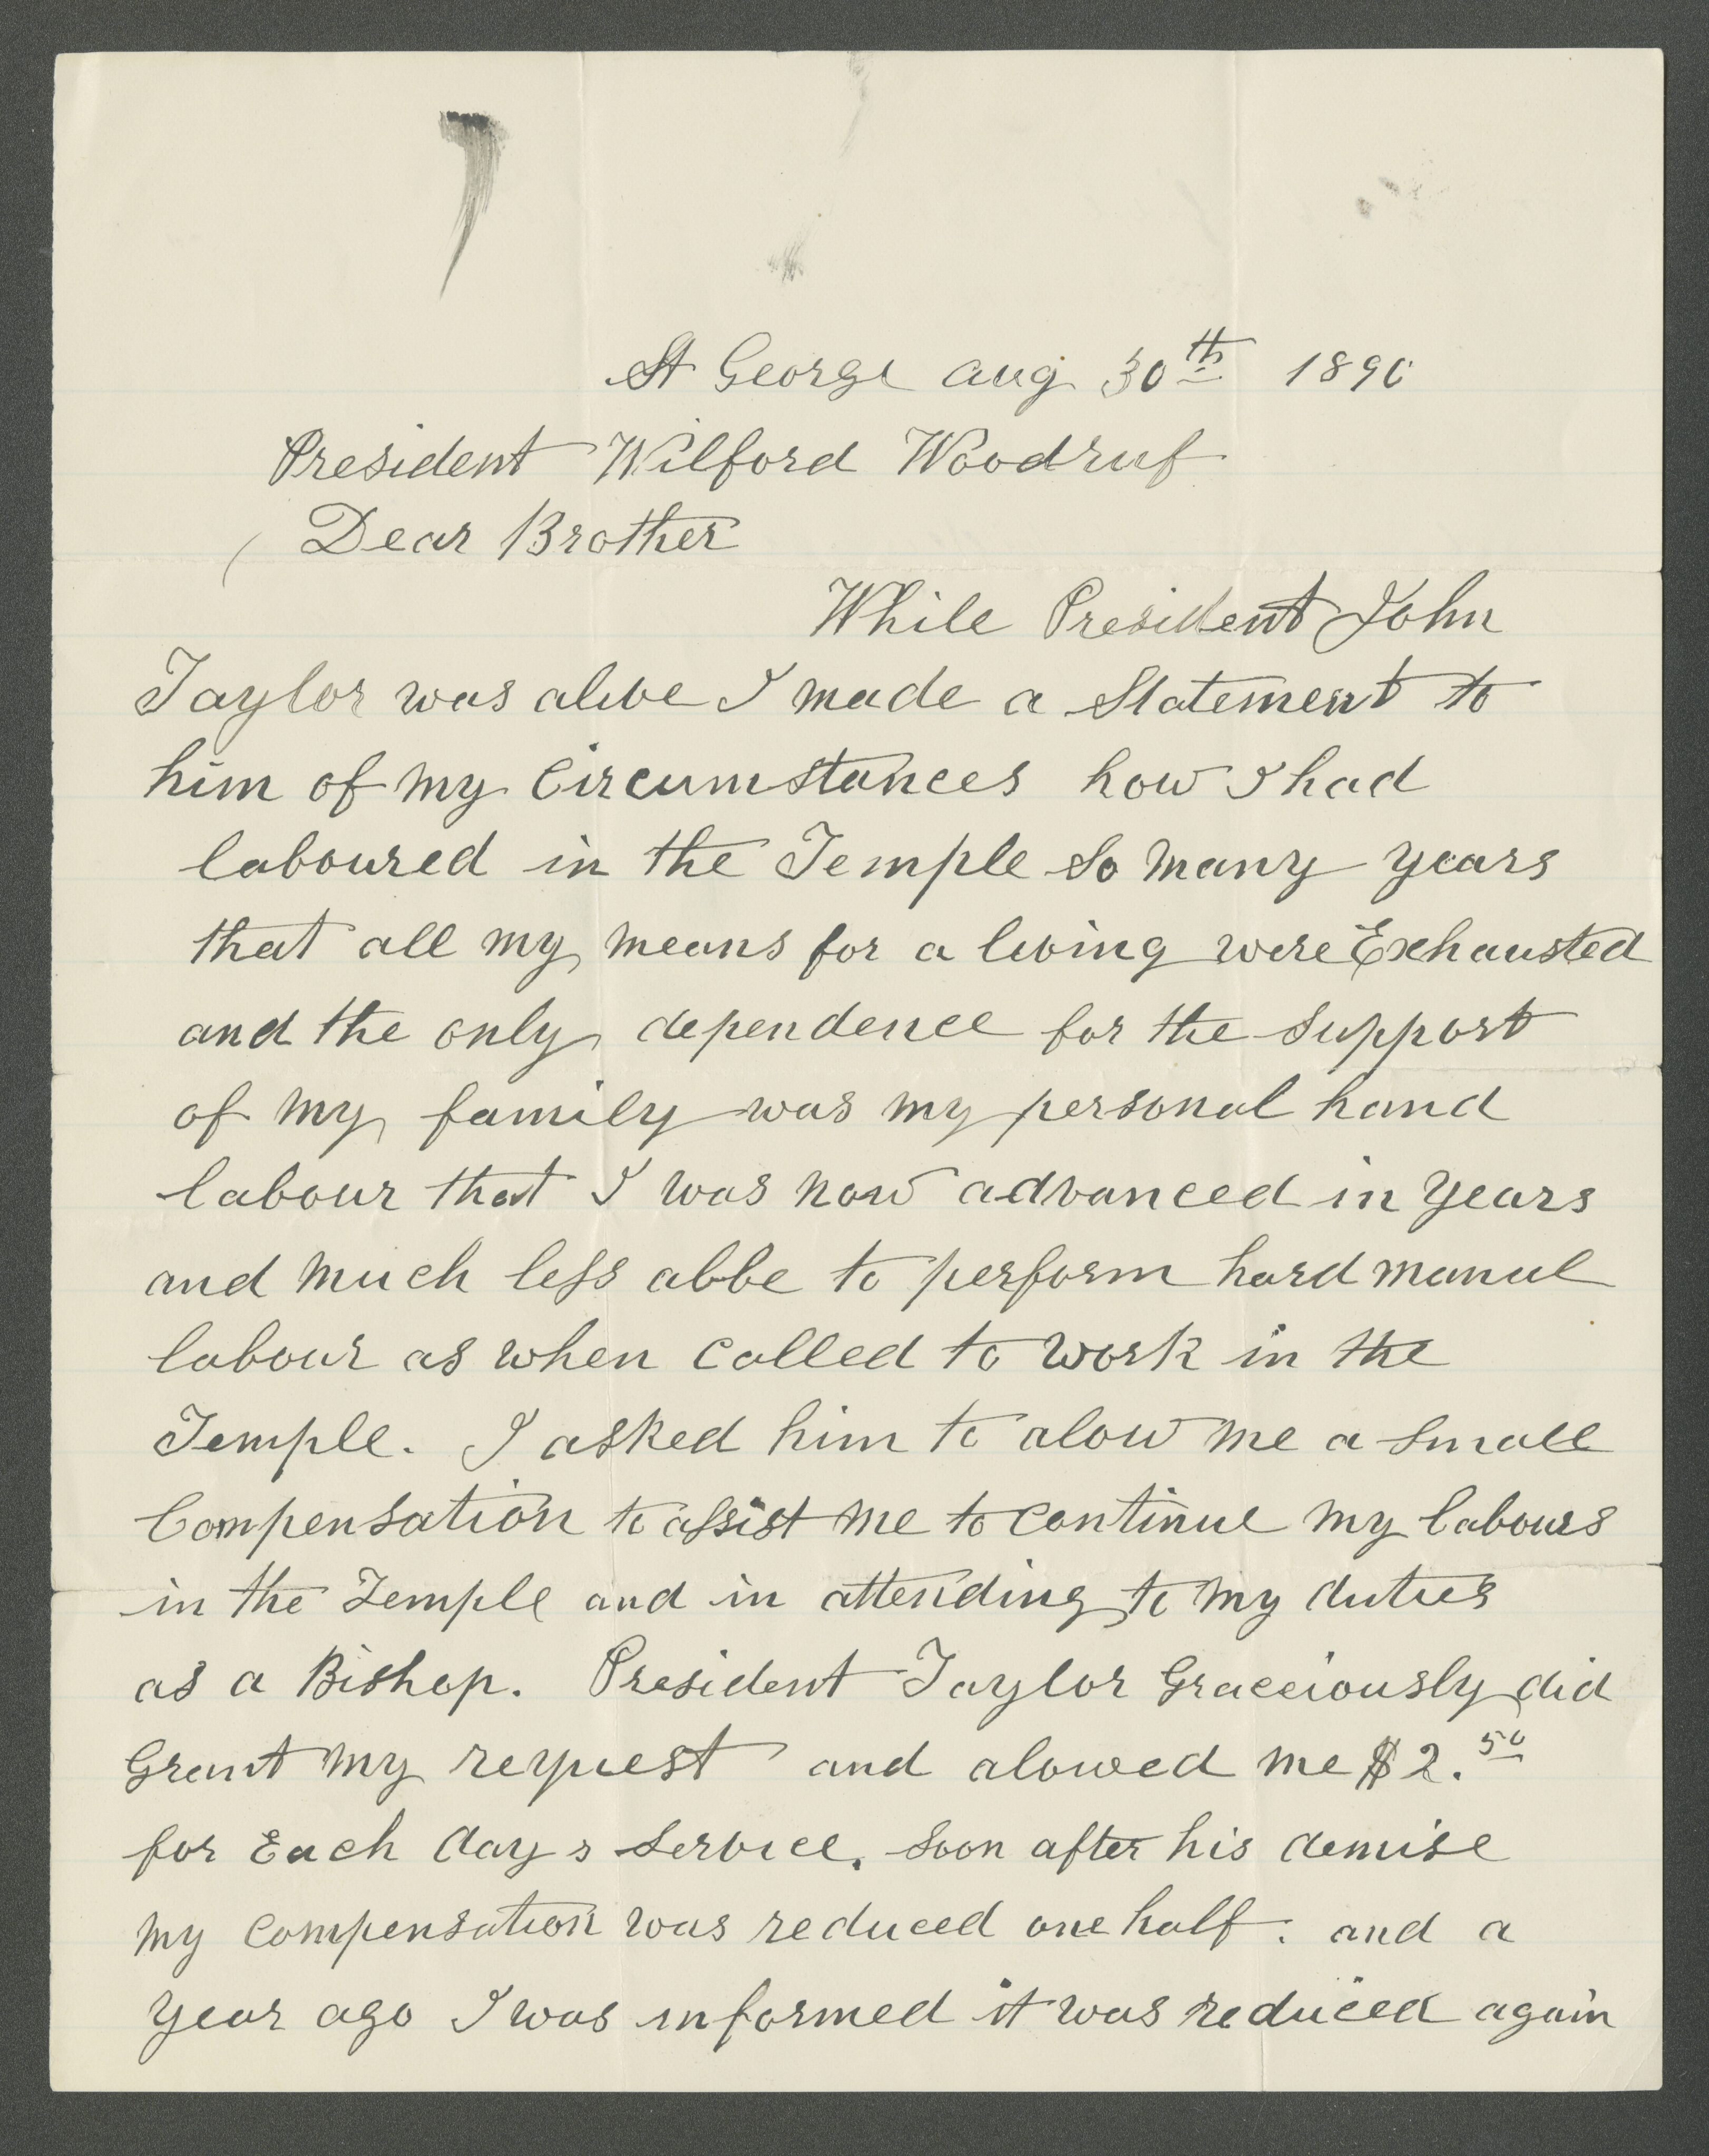 St George aug 30th 1890
President Wilford Woodruf
Dear Brother
While President John
Taylor was alive I made a Statement to
him of my Circumstances how I had
laboured in the Temple so many years
that all my means for a living were Exhausted
and the only dependence for the support
of my family was my personal hand
labour that I was now advanced in years
and much less abbe to perform hard manul
labour as when called to work in the
Temple. I asked him to alow me a small
Compensation to assist me to continue my labours
in the Temple and in attending to my duties
as a Bishop. President Taylor Gracciously did
Grant my request and alowed me $2.50
for Each days service. soon after his demise
my compensation was reduced one half. and a
year ago I was informed it was reduced again